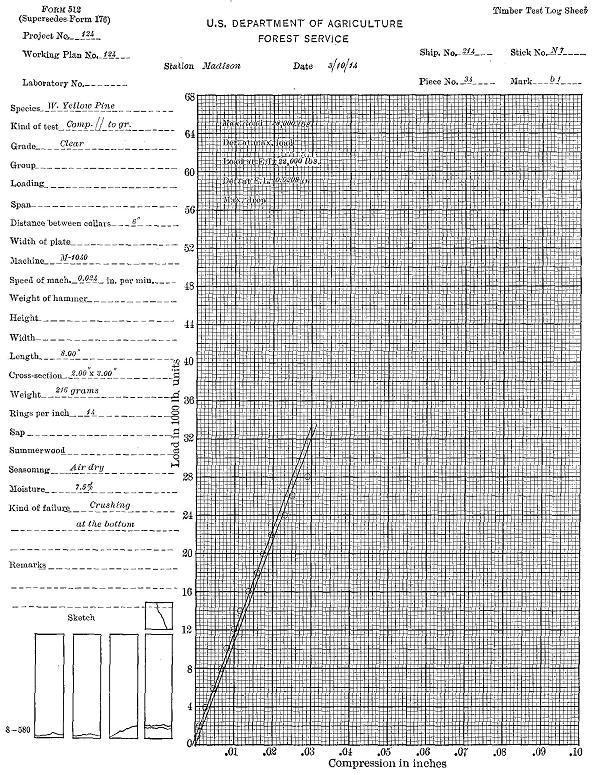 FORM 512
(Supersedes Form 176)
Timber Test Log Sheet
U.S. DEPARTMENT OF AGRICULTURE
FOREST SERVICE
Project No. 124
Working Plan No. 124
Ship. No. 214 Stick No. N7
Station Madison Date 3/10/14
Laboratory No.
Piece No. 34 Mark b1
Species W. Yellow Pine
Kind of test Comp. // to gr.
Grade Clear
Group
Loading
Span
Distance between collars 6"
Width of plate
Machine M-1040
Speed of mach. 0.024 in. per min.
Weight of hammer
Height
Width
Length 8.00"
Cross-section 2.00" x 2.00"
Weight 216 grams
Rings per inch 14
Sap
Summerwood
Seasoning Air dry
Moisture 7.5%
Kind of failure Crushing
at the bottom
Remarks
Sketch
8-580
Max. load
Def. at max. load
Load at E.L. lbs.
Def. at E.L. in.
Max. drop
Load in 1000 lb. units
68
64
60
56
52
48
44
40
36
32
28
24
20
16
12
8
4
0
.01 .02 .03 .04 .05 .06 .07 .08 .09 .10
Compression in inches